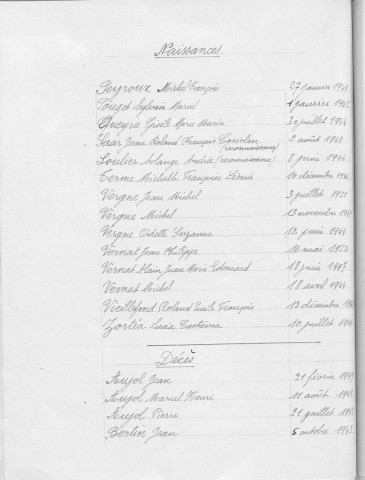 Naissances.
Peyroux Michel François 27 janvier 1949
Pouget Sylvain Marcel 1 janvier 1945
Queyra Gisèle Marie Maria 30 juillet 1944
Saar Jean Roland François Coriolan (reconnaissance) 2 août 1943
Soulier Solange Andrée (reconnaissance) 8 juin 1946
Terme Michelle Françoise Léonie 10 décembre
Vergne Jean Michel 3 juillet 1951
Vergne Michel 13 novembre
Vergne Odette Suzanne 12 juin 1944
Vernat Jean Philippe 16 mai 1952
Vernat Alain Jean Marie Edouard 18 juin 1947
Vernat Michel 18 avril 1944
Vieillefond Roland Emile François 13 décembre
Zortéa Lucia Costanza 10 juillet 1944
Décès
Aujol Jean 21 février 1949
Aujol Marcel Henri 11 août 1948
Aujol Pierre 21 juillet 1948
Bertin Jean 5 octobre 1943